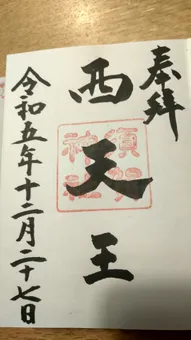 奉拝
西天王
須賀神社
令和五年十二月二十七日